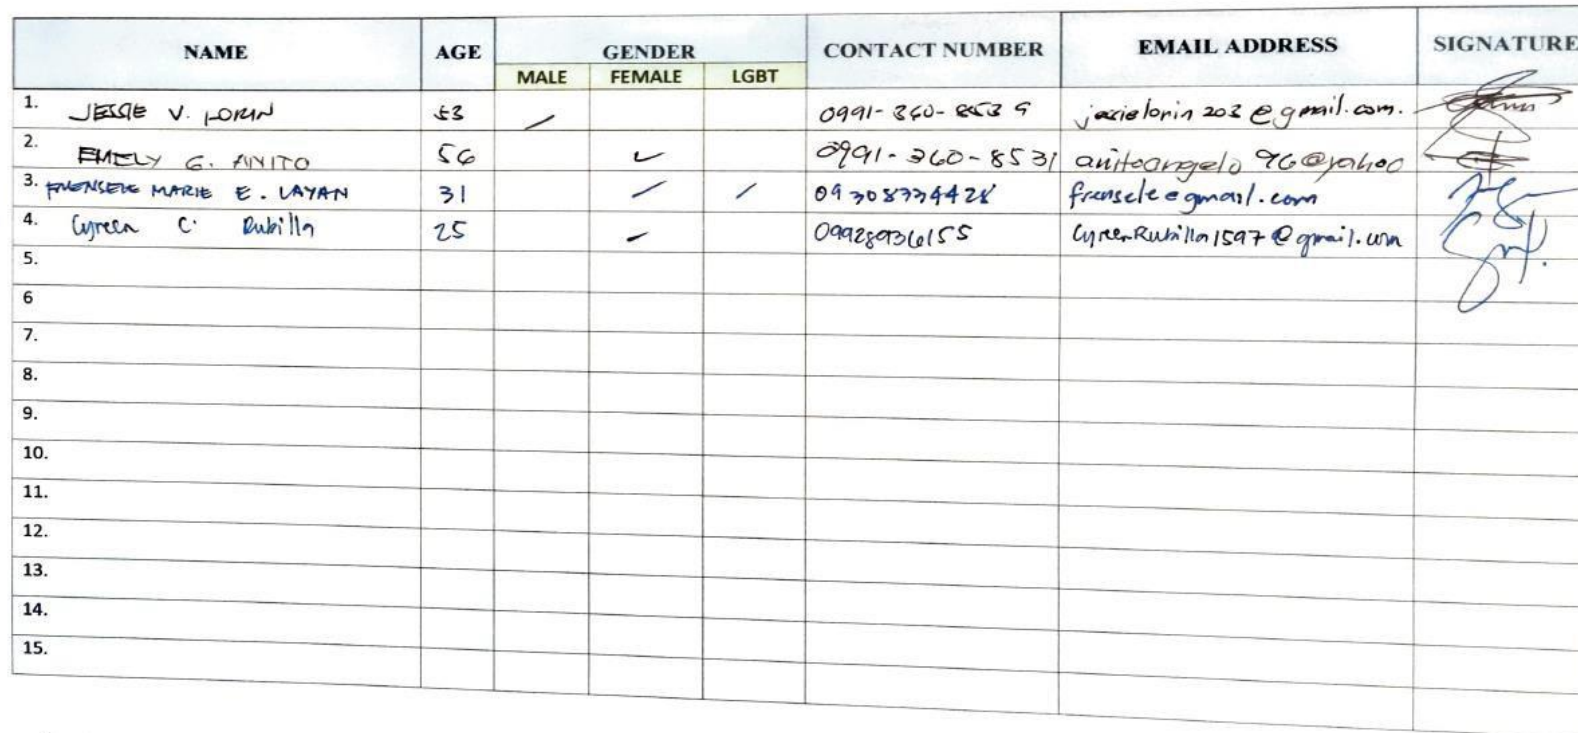 NAME AGE GENDER CONTACT NUMBER EMAIL ADDRESS SIGNATURE
MALE FEMALE LGBT
1. JESSIE V. LORIN 53 / 0991-360-8539 jessielorin203@gmail.com.
2. EMELY G. ANITO 56 ✓ 0991-360-8531 anitoangelo96@yahoo
3. FRENSELE MARIE E. LAYAN 31 / / 09308734428 frensele@gmail.com
4. Cyreen C. Rubilla 25 / 09928936155 CyreenRubilla1597@gmail.com
5.
6
7.
8.
9.
10.
11.
12.
13.
14.
15.